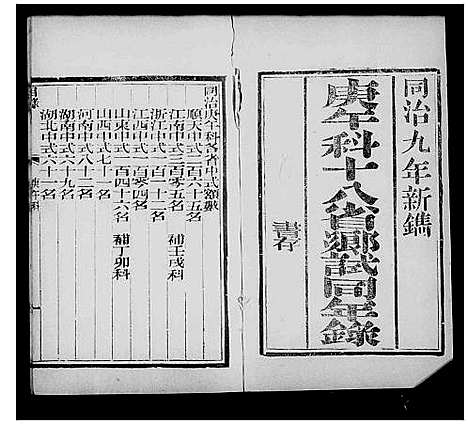 同治九年新鐫
庚午科十八省鄉試同年錄
書存
同治庚午科各省中式額數
順天中式二百六十五名
江南中式三百零五名 補壬戌科
浙江中式一百十二名
江西中式一百零四名
山東中式一百四十六名 補丁卯科
山西中式七十一名
河南中式八十二名
湖南中式六十九名
湖北中式六十一名